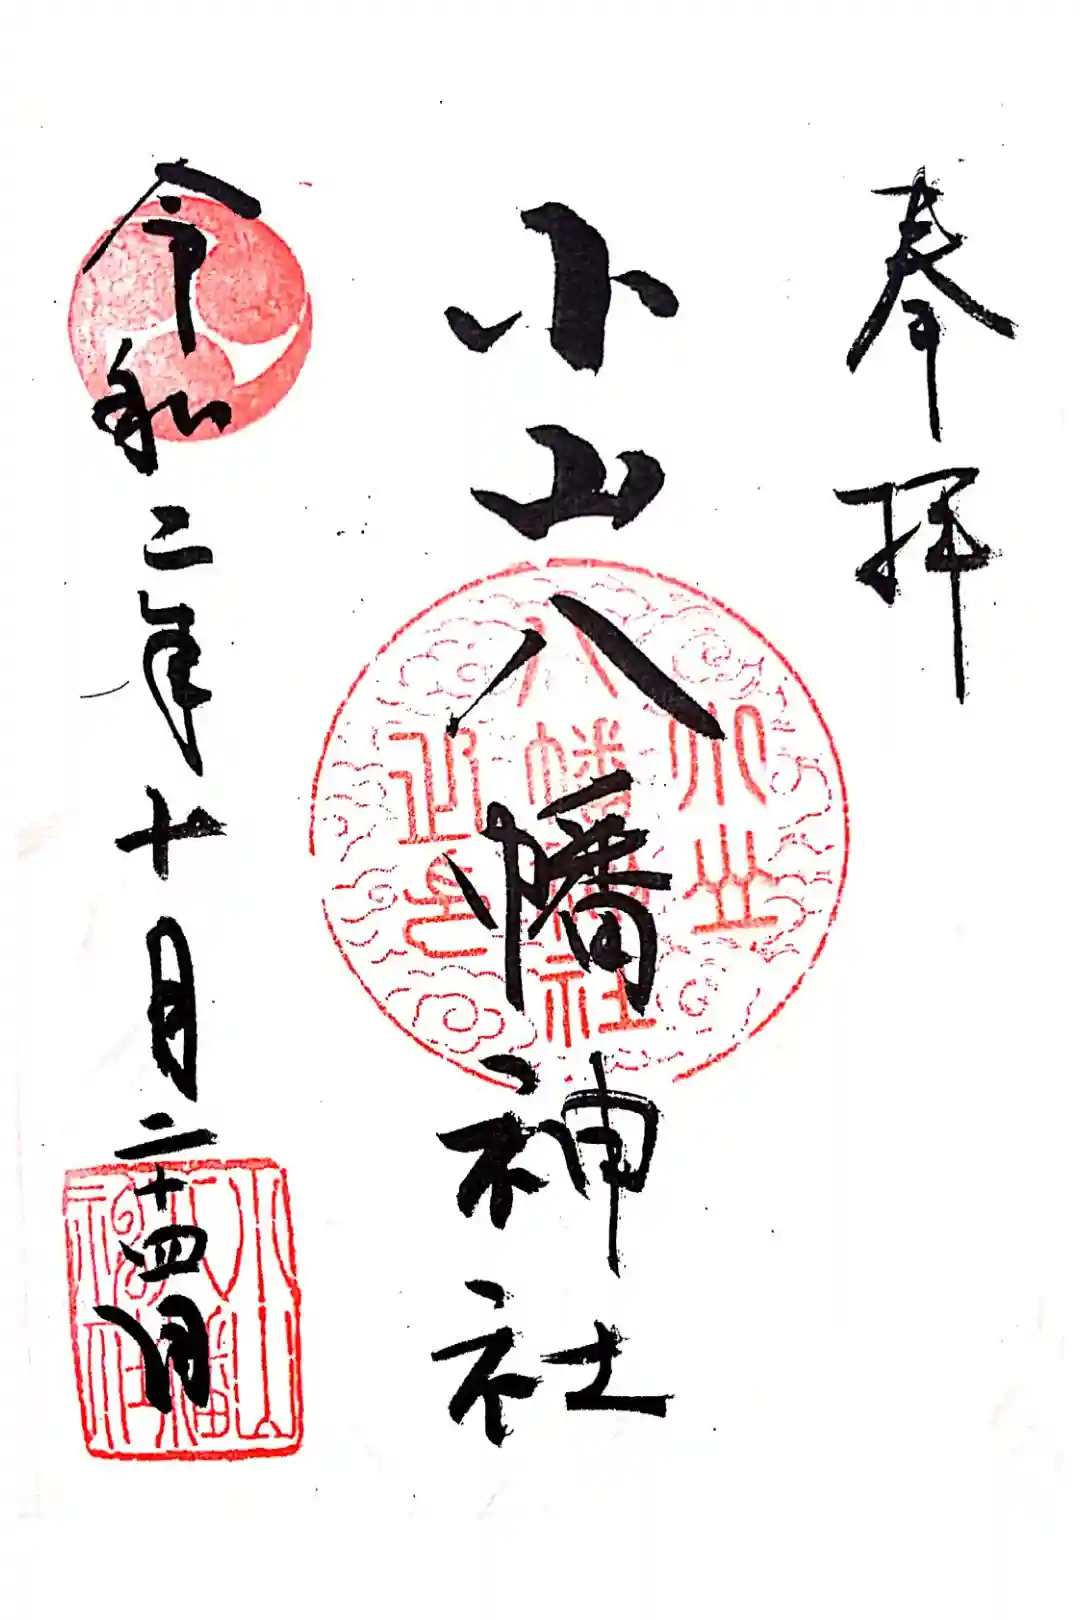 奉拝
小山八幡神社
令和二年十月二十四日
小山
八幡神社
之印